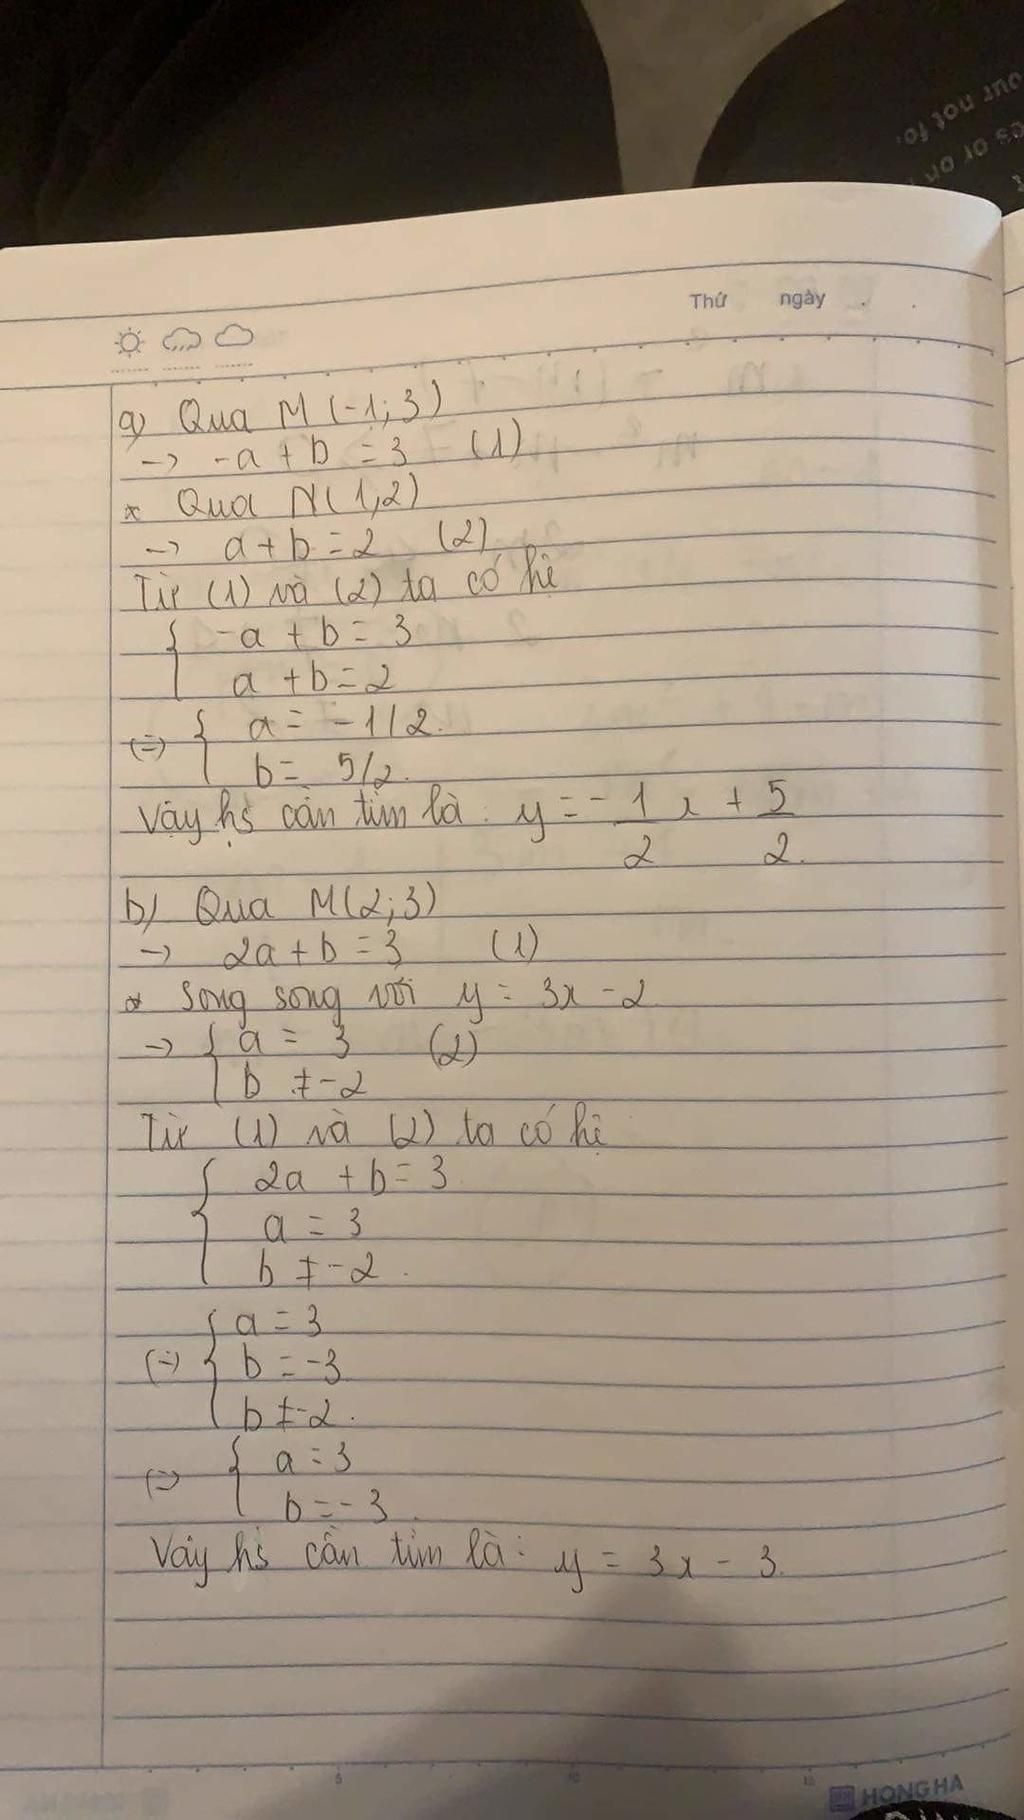 our not for
es or on
Thứ ngày . .
a) Qua M (-1; 3)
-> -a + b = 3 (1)
* Qua N(1,2)
-> a + b = 2 (2)
Từ (1) và (2) ta có hệ
{ -a + b = 3
a + b = 2
(=) { a = -1/2.
b = 5/2.
Vậy hs cần tìm là: y = -1/2 x + 5/2.
b) Qua M(2; 3)
-> 2a + b = 3 (1)
* Song song với y = 3x - 2
-> { a = 3 (2)
b ≠ -2
Từ (1) và (2) ta có hệ
{ 2a + b = 3
a = 3
b ≠ -2.
(=) { a = 3
b = -3
b ≠ -2.
(=) { a = 3
b = -3.
Vậy hs cần tìm là: y = 3x - 3.
5 10 15
HONG HA